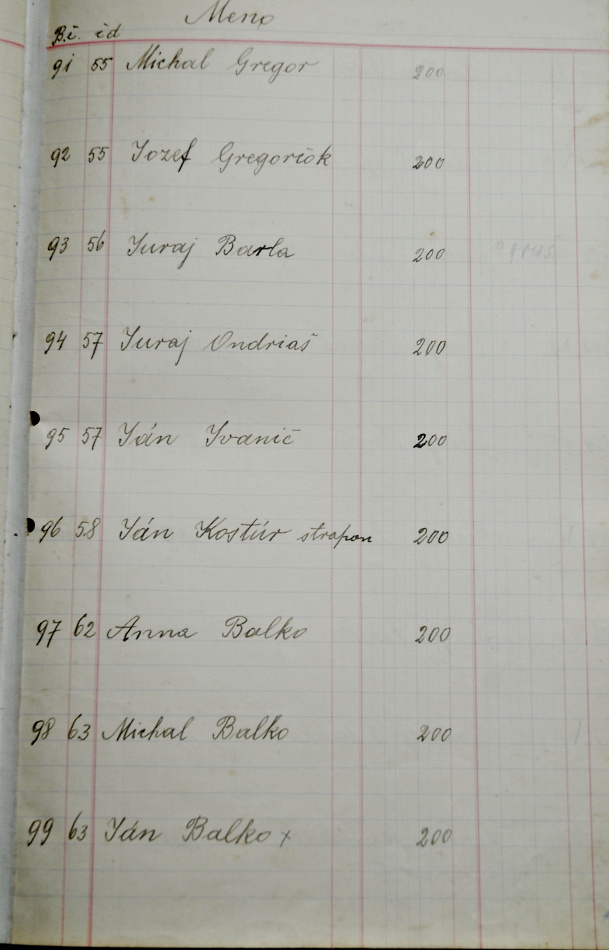 Meno
B.č. čd
91 55 Michal Gregor 200
92 55 Jozef Gregorčok 200
93 56 Juraj Barla 200
94 57 Juraj Ondriaš 200
95 57 Ján Ivanič 200
96 58 Ján Kostúr strapon 200
97 62 Anna Balko 200
98 63 Michal Balko 200
99 63 Ján Balko x 200